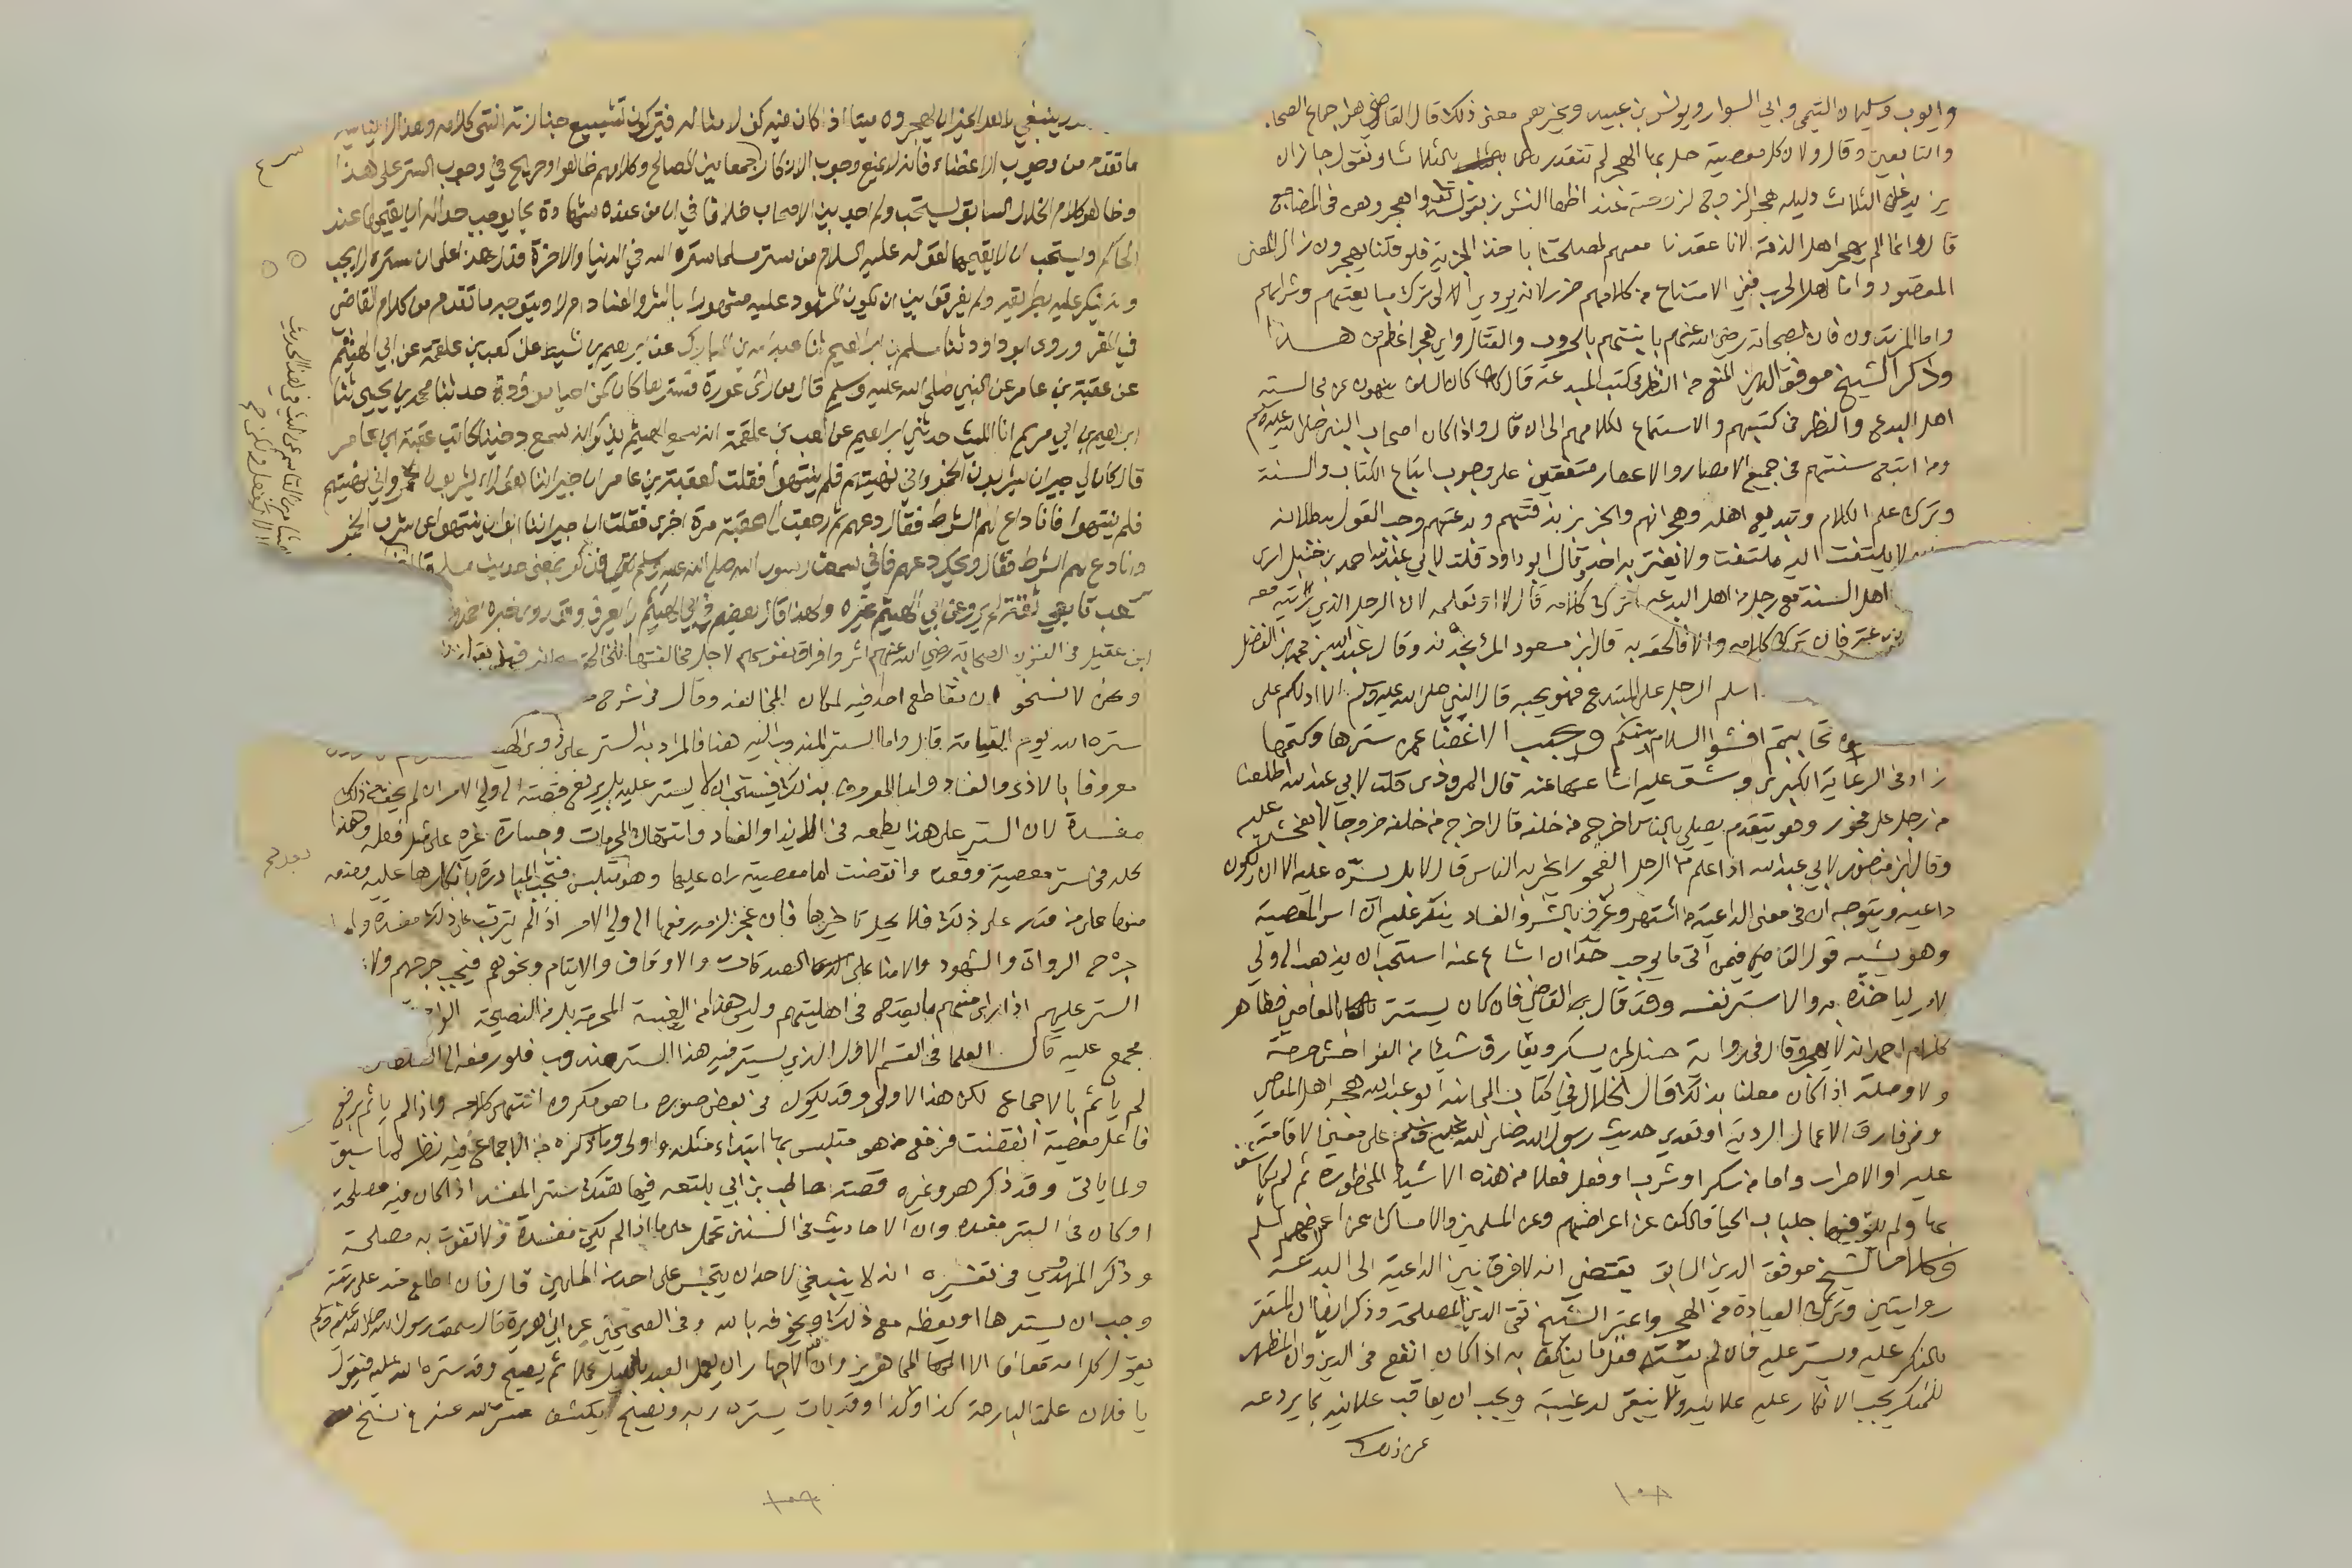 وايوب وسليمان التيمي وابي السوار ويونس بن عبيد وغيرهم معنى ذلك قال القاضي هو اجماع الصحابه
والتابعين وقال ولان كل معصية حل بها الهجر لم تتقدر بالثلاث او نقول جاز ان
يزيد على الثلاث دليله هجر الزوج لزوجته عند اظهار النشوز بقوله واهجروهن في المضاجع
قال وانما لم يهجر اهل الذمة لانا عقدنا معهم لمصلحتنا باخذ الجزية فلو قلنا يهجرون زال المعنى
المقصود واما اهل الحرب ففي الامتناع من كلامهم ضرر لانه يودي الى ترك مبايعتهم وشرائهم
واما المرتدون فان الصحابة رضي الله عنهم باينتهم بالحروب والقتال واي هجر اعظم من هذا
وذكر الشيخ موفق الدين المنع من النظر في كتب المبتدعة قال كان السلف ينهون عن مجالسة
اهل البدع والنظر في كتبهم والاستماع لكلامهم الى ان قال واذا كان اصحاب النبي صلى الله عليه وسلم
ومن اتبع سنتهم في جميع الامصار والاعصار متفقين على وجوب اتباع الكتاب والسنة
وترك علم الكلام وتبديع اهله وهجرانهم والخبر بزندقتهم وبدعتهم وجب القول ببطلانه
لا يلتفت اليه ملتفت ولا يغتر به احد وقال ابو داود قلت لابي عبد الله احمد بن حنبل ارى
اهل السنة مع رجل من اهل البدعة اترك كلامه قال لا او تعلمه ان الرجل الذي رايته معه
بدعة فان ترك كلامه والا فالحقه به قال ابن مسعود المرء بخدنه وقال عبد الله بن محمد بن الفضل
اسلم الرجل على المبتدع فهو يحبه قال النبي صلى الله عليه وسلم الا ادلكم على
تحاببتم افشوا السلام بينكم ويجب الاغضا عمن سترها وكتمها
زاد في الرعاية الكبرى وشق عليه اشاعتها عنه قال المروذي قلت لابي عبد الله اطلعنا
من رجل على فجور وهو يتقدم يصلي بالناس اخرج من خلفه قال اخرج من خلفه خروجا لا تفحش عليه
وقال ابن منصور لابي عبد الله اذا علم من الرجل الفجور ايخبر به الناس قال لا بل يستره عليه الا ان يكون
داعية ويتوجه ان في معنى الداعية من اشتهر وعرف بالشر والفساد ينكر عليه وان اسر المعصية
وهو يشبه قول القاضي فيمن اتى ما يوجب حدا ان شاع عنه استحب ان يذهب الى ولي
الامر لياخذه به والا ستر نفسه وقد قال القاضي فان كان يستتر بالمعاصي فظاهر
كلام احمد انه لا يهجر قال في رواية حنبل لمن يسكر ويقارف شيئا من الفواحش حرمة
ولا وصلة اذا كان معلنا بذلك قال الخلال في كتاب المجانبة ابو عبد الله هجر اهل المعاصي
ومن قارف الاعمال الردية او تعدى حديث رسول الله صلى الله عليه وسلم على معنى الاقامة
عليه او الاصرار واما من سكر او شرب او فعل فعلا من هذه الاشيا المحظورة ثم لم يكاشف
بها ولم يلق فيها جلباب الحيا فالكف عن اعراضهم وعن المسلمين والامساك عن اعراضهم اسلم
وكلام الشيخ موفق الدين السابق يقتضي انه لا فرق بين الداعية الى البدعة
روايتين وترك العيادة من الهجر واعتبر الشيخ تقي الدين المصلحة وذكر ايضا ان المستتر
بالمنكر ينكر عليه ويستر عليه فان لم ينته فعل ما ينكف به اذا كان انفع في الدين وان المظهر
للمنكر يجب الانكار عليه علانية ولا يبقى له غيبة ويجب ان يعاقب علانية بما يردعه
عن ذلك
١٠٨
وينبغي لاهل الخير ان يهجروه ميتا اذا كان فيه كف لامثاله فيتركون تشييع جنازته انتهى كلامه وهذا لا ينافيه
ما تقدم من وجوب الاغضاء فانه لا يمنع وجوب الانكار جمعا بين المصالح وكلامهم ظاهر او صريح في وجوب الستر على هذا
وظاهر كلام الخلال السابق يستحب ولم اجد بين الاصحاب خلافا في ان من عنده شهادة بما يوجب حدا له ان يقيمها عند
الحاكم ويستحب ان لا يقيمها لقوله عليه السلام من ستر مسلما ستره الله في الدنيا والاخرة فدل هذا على ان ستره لا يجب
وتنكر عليه بطريقه ولم يفرقوا بين ان يكون المشهود عليه مشهورا بالشر والفساد ام لا ويتوجه ما تقدم من كلام القاضي
في المقر وروى ابو داود ثنا مسلم بن ابراهيم ثنا عبد الله بن المبارك عن ابراهيم بن نشيط عن كعب بن علقمة عن ابي الهيثم
عن عقبة بن عامر عن النبي صلى الله عليه وسلم قال من راى عورة فسترها كان كمن احيا موؤدة حدثنا محمد بن يحيى ثنا
ابراهيم بن ابي مريم انا الليث حدثني ابراهيم عن كعب بن علقمة انه سمع الهيثم يذكر انه سمع دخينا كاتب عقبة ابن عامر
قال كان لي جيران يشربون الخمر واني نهيتهم فلم ينتهوا فقلت لعقبة بن عامر ان جيراننا هؤلاء يشربون الخمر واني نهيتهم
فلم ينتهوا فانا داع لهم الشرط فقال دعهم ثم رجعت الى عقبة مرة اخرى فقلت ان جيراننا ابوا ان ينتهوا عن شرب الخمر
وانا داع لهم الشرط فقال ويحك دعهم فاني سمعت رسول الله صلى الله عليه وسلم فذكر بمعنى حديث مسلم
كعب تابعي ثقة لم يرو عن ابي الهيثم غيره ولهذا قال بعضهم في ابي الهيثم لا يعرف
ابن عقيل في الفنون الصحابة رضي الله عنهم اثروا فراق نفوسهم لاجل مخالفتها للخالق
ونحن لا نسخو ان نقاطع احد فيه لمكان المخالفة وقال في شرح
ستره الله يوم القيامة قال واما الستر المندوب اليه هنا فالمراد به الستر على ذوي
معروفا بالاذى والفساد واما المعروف بذلك فيستحب ان لا يستر عليه بل يرفع قصته الى ولي الامر ان لم يخف من ذلك
مفسدة لان الستر على هذا يطمعه في الايذاء والفساد وانتهاك الحرمات وجسارة غيره على مثل فعله وهذا
كله في ستر معصية وقعت وانقضت اما معصية راه عليها وهو متلبس فتجب المبادرة بانكارها عليه ومنعه
منها على من قدر على ذلك فلا يحل تاخيرها فان عجز لزمه رفعها الى ولي الامر اذا لم يترتب على ذلك مفسدة
جرح الرواة والشهود والامنا على الصدقات والاوقاف والايتام ونحوهم فيجب جرحهم
الستر عليهم اذا راى منهم ما يقدح في اهليتهم وليس هذا من الغيبة المحرمة بل من النصيحة
مجمع عليه قال العلما في القسم الاول الذي يستر فيه هذا الستر مندوب فلو رفعه الى السلطان
لم ياثم بالاجماع لكن هذا الاولى وقد يكون في بعض صوره ما هو مكروه انتهى كلامه واذا لم ياثم برفع
فاعل معصية انقضت فرفع من هو متلبس بها ابتداء مثله واولى وما ذكره من الاجماع فيه نظر لما سبق
ولما ياتي وقد ذكر هو وغيره قصة حاطب بن ابي بلتعة فيها هتك ستر المفسد اذا كان فيه مصلحة
او كان في الستر مفسدة وان الاحاديث في الستر تحمل على ما اذا لم يكن مفسدة ولا تفوت به مصلحة
وذكر المهدوي في تفسيره انه لا ينبغي لاحد ان يتجسس على احد من المسلمين قال فان اطلع منه على ريبة
وجب ان يسترها او يعظه مع ذلك ويخوفه بالله وفي الصحيحين عن ابي هريرة قال سمعت رسول الله صلى الله عليه وسلم
يقول كل امتي معافا الا المجاهرين وان من الاجهار ان يعمل العبد بالليل عملا ثم يصبح وقد ستره الله عليه فيقول
يا فلان عملت البارحة كذا وكذا وقد بات يستره ربه ويصبح يكشف ستر الله عنه في نسخ